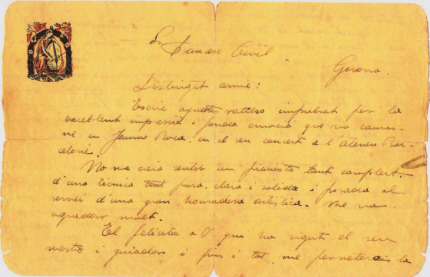 Sr. Civil
Gerona.
Distingit amic:
Escric aquestes ratlles per la
excelent impresió i fonda emoció que va
en Jaume Roca, en el seu concert a l'Ateneu Bar-
celonés.
No un pianista tant complert.
d'una tècnica tant pura, clara i solida i posada al
servei d'una gran honradesa artística. Me va
agradar molt.
El felicito a V. qui ha sigut el seu
mestre i guiador i fins i tot, me permeteria la